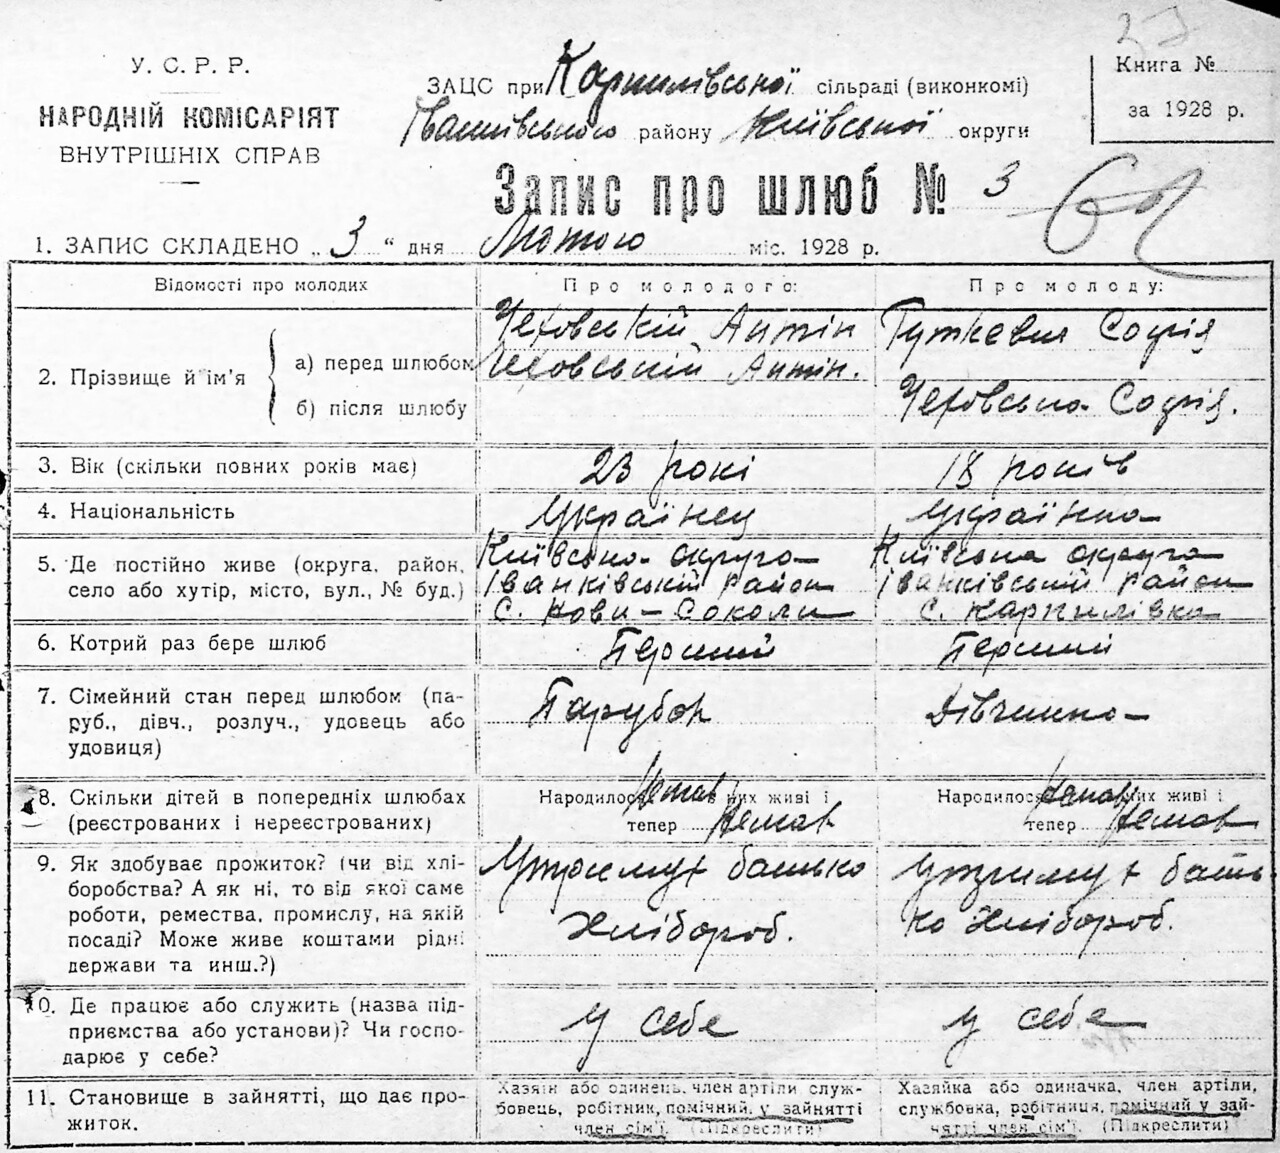 27
У. С. Р. Р.
НАРОДНІЙ КОМІСАРІЯТ
ВНУТРІШНІХ СПРАВ
ЗАЦС при Карпилівської сільраді (виконкомі)
Іванківського району Київської округи
Книга №
за 1928 р.
Запис про шлюб № 3
1. ЗАПИС СКЛАДЕНО „ 3 “ дня Лютого міс. 1928 р.
Відомості про молодих
Про молодого:
Про молоду:
2. Прізвище й ім'я
а) перед шлюбом
б) після шлюбу
Чеховський Антін
Чеховський Антін.
Гуткевич Софія
Чеховська Софія.
3. Вік (скільки повних років має)
23 рокі
18 років
4. Національність
Українец
Українка
5. Де постійно живе (округа, район,
село або хутір, місто, вул., № буд.)
Київська округа
Іванківський район
С. Нови-Соколи
Київська округа
Іванківський район
С. Карпилівка
6. Котрий раз бере шлюб
Перший
Перший
7. Сімейний стан перед шлюбом (па-
руб., дівч., розлуч., удовець або
удовиця)
Парубок
Дівчина
8. Скільки дітей в попередніх шлюбах
(реєстрованих і нереєстрованих)
Народилося Немає них живі і
тепер Немає
Народилося Немає них живі і
тепер Немає
9. Як здобуває прожиток? (чи від хлі-
боробства? А як ні, то від якої саме
роботи, ремества, промислу, на якій
посаді? Може живе коштами рідні
держави та инш.?)
батько
Хлібороб.
бать-
ко Хлібороб.
10. Де працює або служить (назва під-
приємства або установи)? Чи госпо-
дарює у себе?
у себе
у себе
11. Становище в зайнятті, що дає про-
житок.
Хазяїн або одинець, член артіли служ-
бовець, робітник, помічний у зайнятті
член сім'ї. (Підкреслити)
Хазяйка або одиначка, член артіли,
службовка, робітниця, помічний у зай-
нятті член сім'ї. (Підкреслити)